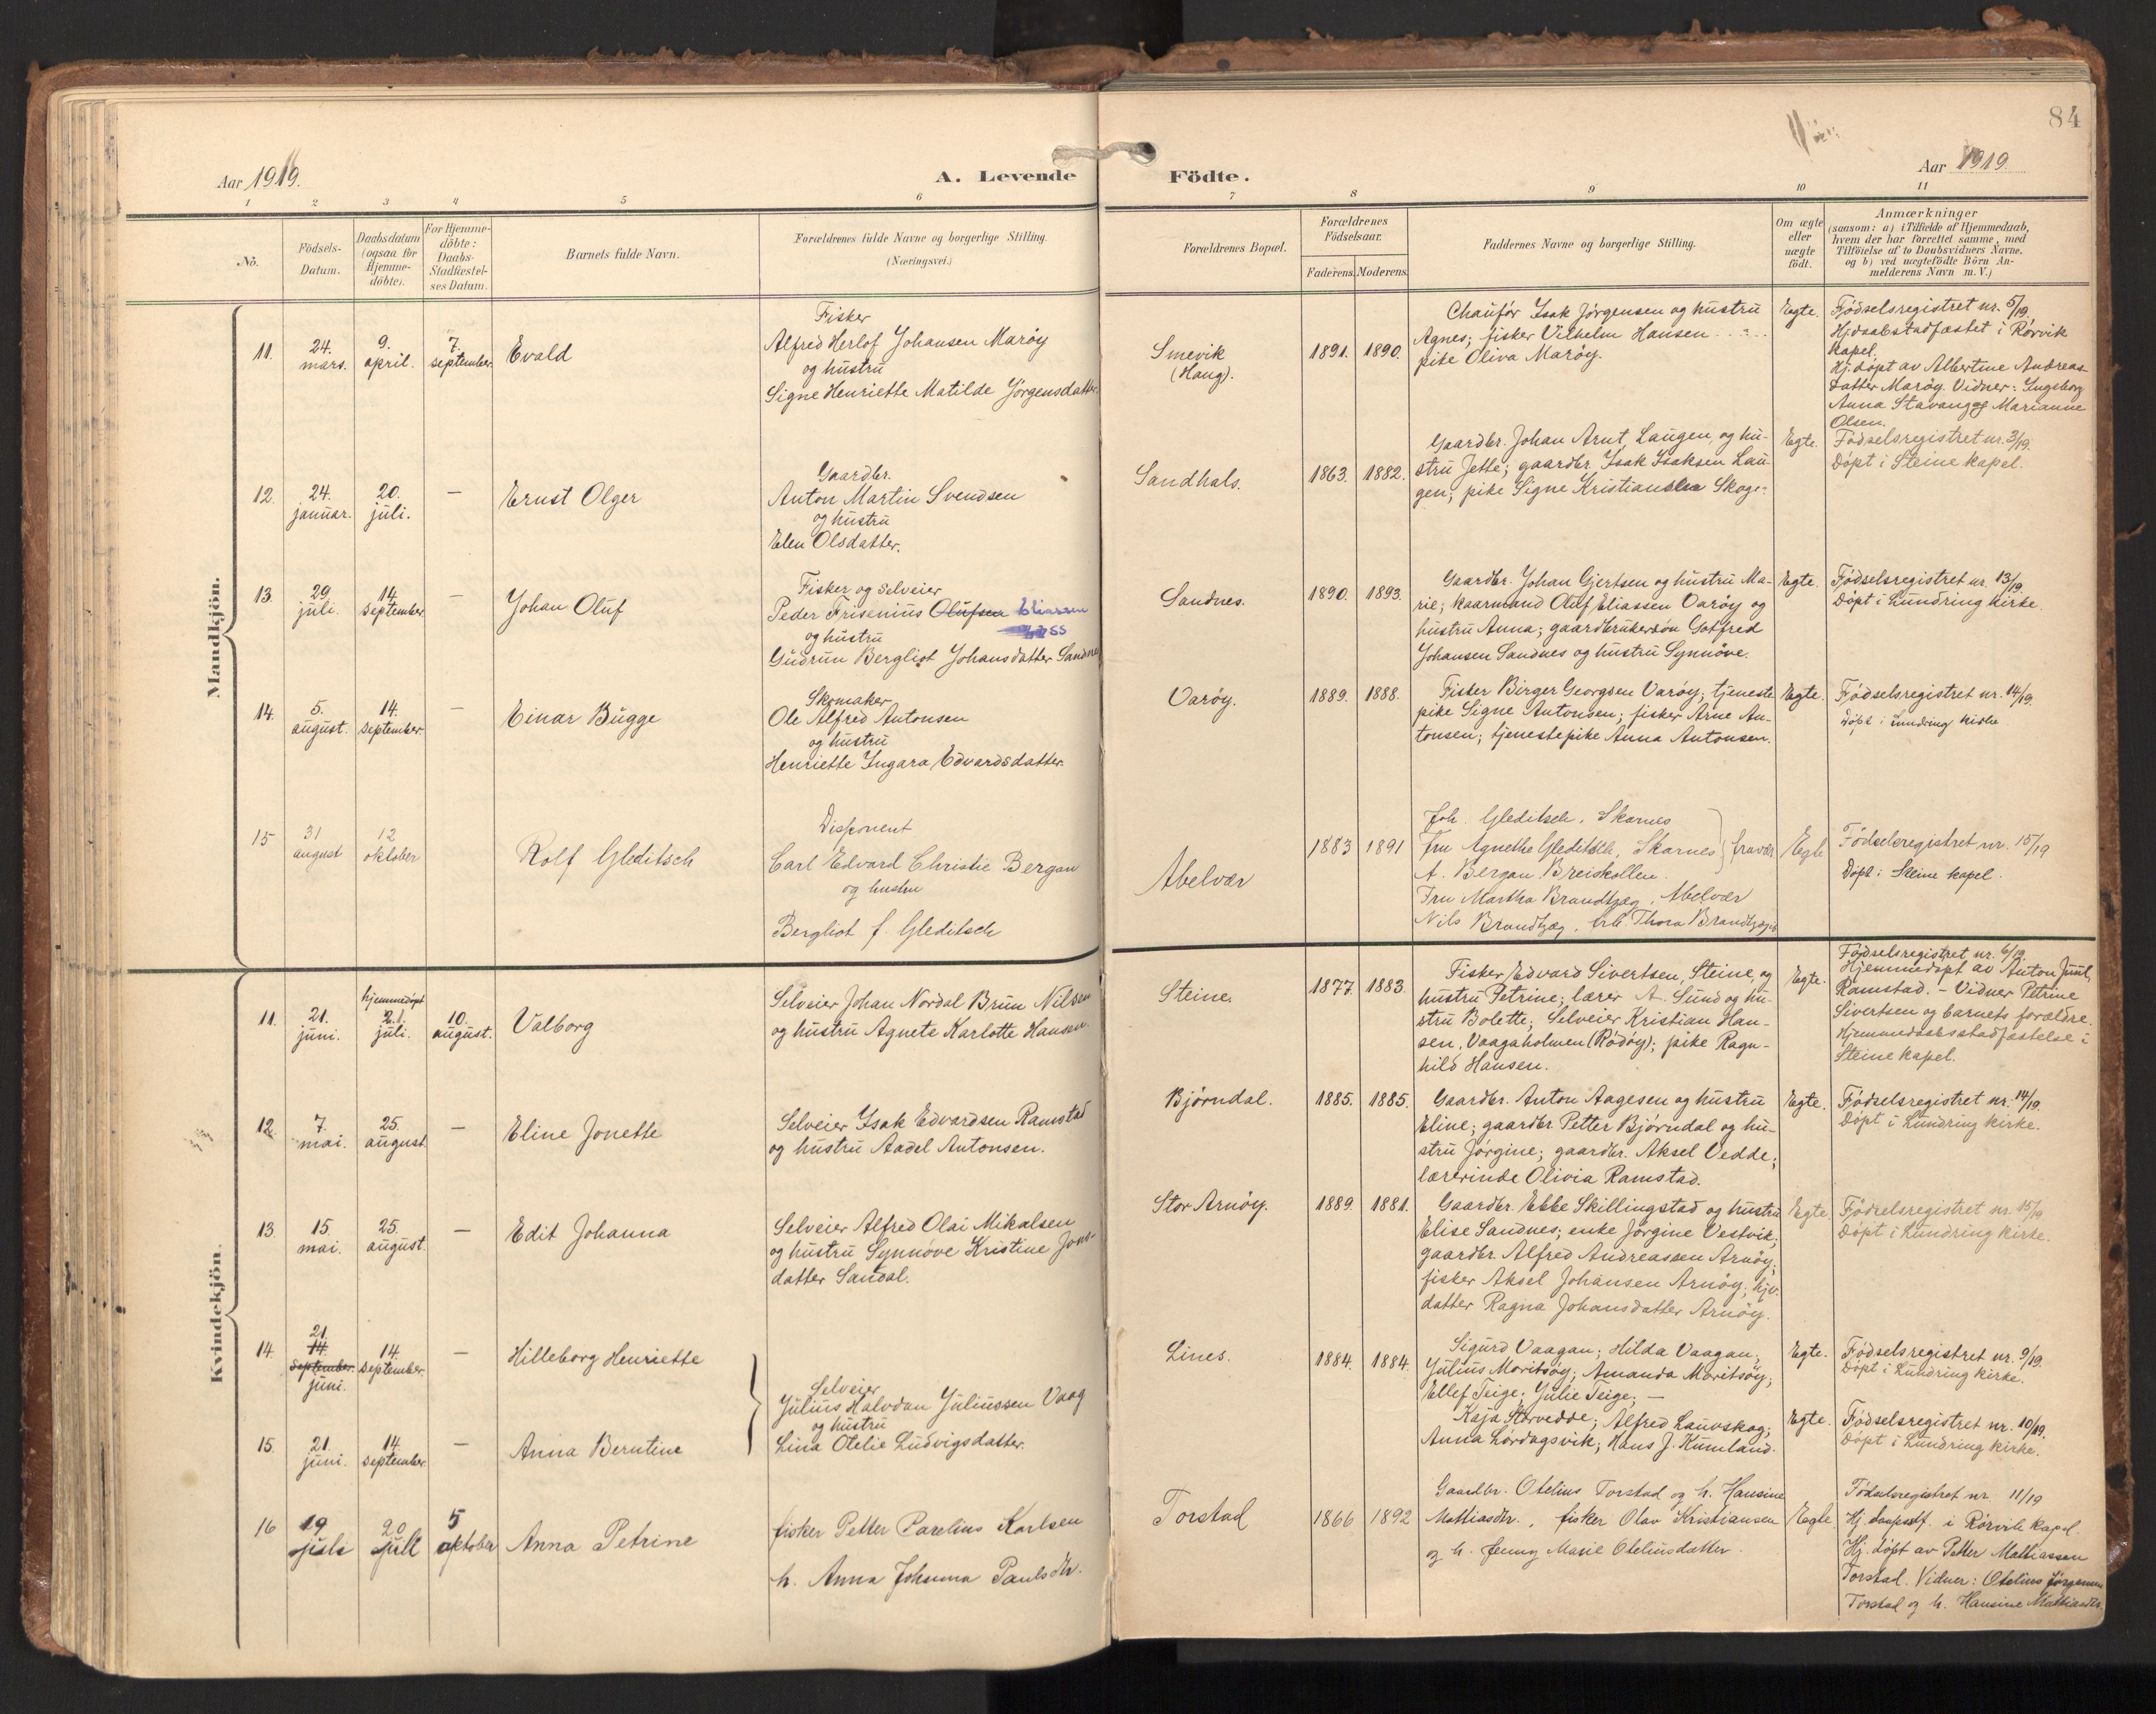 84
Aar 1919.
A. Levende
Födte.
Aar 1919.
1 2 3 4 5 6 7 8 9 10 11
No.
Födsels-
Datum.
Daabsdatum
(ogsaa for
Hjemme-
döbte).
For Hjemme-
döbte:
Daabs-
Stadfæstel-
ses Datum.
Barnets fulde Navn.
Forældrenes fulde Navne og borgerlige Stilling.
(Næringsvei.)
Forældrenes Bopæl.
Forældrenes
Födselsaar.
Faderens. Moderens.
Faddernes Navne og borgerlige Stilling.
Om ægte
eller
uægte
födt.
Anmærkninger
(saasom: a) i Tilfælde af Hjemmedaab,
hvem der har forrettet samme, med
Tilföielse af to Daabsvidners Navne,
og b) ved uægtefödte Börn An-
melderens Navn m. V.)
Mandkjön.
11.
24.
mars.
9.
april.
7.
september.
Evald
Fisker
Alfred Herlof Johansen Marøy
og hustru
Signe Henriette Matilde Jørgensdatter.
Smevik
(Haug).
1891. 1890.
Chaufør Isak Jørgensen og hustru
Agnes; fisker Vilhelm Hansen
pike Oliva Marøy.
Egte.
Fødselsregistret nr. 5/19.
Hjdaabstadfæstet i Rørvik
kapel.
Hj. døpt av Albertine Andreas-
datter Marøy. Vidner: Ingeborg
Anna Stavang og Marianne
Olsen.
12.
24.
januar.
20.
juli.
—
Ernst Olger
Gaardbr.
Anton Martin Svendsen
og hustru
Elen Olsdatter.
Sandhals.
1863. 1882.
Gaardbr. Johan Arnt Laugen, og hu-
stru Jette; gaardbr. Isak Isaksen Lau-
gen; pike Signe Kristiansen Skoge
Egte.
Fødselsregistret nr. 3/19.
Døpt i Steine kapel.
13.
29.
juli.
14.
september.
—
Johan Oluf
Fisker og selveier
Peder Frisenius Olufsen Eliassen
og hustru
Gudrun Bergliot Johansdatter Sandnes
Sandnes.
1890. 1893.
Gaardbr. Johan Gjertsen og hustru Ma-
rie; kaarmand Oluf Eliassen Varøy og
hustru Anna; gaardbrukersøn Gotfred
Johansen Sandnes og hustru Synnøve.
Egte.
Fødselsregistret nr. 13/19.
Døpt i Lundring kirke.
14.
5.
august.
14.
september.
—
Einar Bugge
Skomaker
Ole Alfred Antonsen
og hustru
Henriette Ingara Edvardsdatter.
Varøy.
1889. 1888.
Fisker Birger Georgsen Varøy; tjeneste
pike Signe Antonsen; fisker Arne An-
tonsen; tjenestepike Anna Antonsen.
Egte.
Fødselsregistret nr. 14/19.
Døpt i Lundring kirke
15
31
august
12
oktober
Rolf Gleditsch
Disponent
Carl Edvard Christie Bergan
og hustru
Bergliot f. Gleditsch
Abelvær
1883 1891
Joh. Gleditsch, Skarnes
Fru Agnethe Gleditsch, Skarnes } fravær.
A. Bergan Breiskollen.
Fru Martha Brandtzæg, Abelvær
Nils Brandtzæg, Thora Brandtzæg
Egte
Fødselsregistret nr. 15/19
Døpt i Steine kapel.
Kvindekjön.
11.
21.
juni.
hjemmedøpt
21.
juli.
10.
august.
Valborg
Selveier Johan Nordal Brun Nilsen
og hustru Agnete Karlotte Hansen
Steine.
1877. 1883.
Fisker Edvard Sivertsen, Steine, og
hustru Petrine; lærer A. Sund og hu-
stru Bolette; Selveier Kristian Han-
sen, Vaagaholmen (Rødøy); pike Ragn-
hild Hansen.
Egte.
Fødselsregistret nr. 6/19.
Hjemmedøpt av Anton Juul
Ramstad. - Vidner Petrine
Sivertsen og barnets forældre.
Hjemmedaabsstadfæstelse i
Steine kapel.
12.
7.
mai.
25.
august.
—
Eline Jonette
Selveier Isak Edvardsen Ramstad
og hustru Aadel Antonsen.
Bjørndal.
1885. 1885.
Gaardbr. Anton Aagesen og hustru
Eline; gaardbr Petter Bjørndal og hu-
stru Jørgine; gaardbr. Aksel Vedde;
lærerinde Olivia Ramstad.
Egte.
Fødselsregistret nr. 14/19.
Døpt i Lundring kirke.
13.
15.
mai.
25.
august.
—
Edit Johanna
Selveier Alfred Olai Mikalsen
og hustru Synnøve Kristine Jons-
datter Sandal.
Stor Arnøy.
1889. 1881.
Gaardbr. Ebbe Skillingstad og hustru
Elise Sandnes; enke Jørgine Vestvik;
gaardbr. Alfred Andreassen Arnøy;
fisker Aksel Johansen Arnøy; hjv.
datter Ragna Johansdatter Arnøy.
Egte.
Fødselsregistret nr. 15/19.
Døpt i Lundring kirke.
14.
21.
14.
september.
juni.
14.
september.
—
Hilleborg Henriette
Selveier
Julius Halvdan Juliussen Vaag
og hustru
Lina Otelie Ludvigsdatter.
Lines.
1884. 1884.
Sigurd Vaagan; Hilda Vaagan;
Julius Moritsøy; Amanda Moritsøy;
Ellef Teige; Julie Teige; —
Egte.
Fødselsregistret nr. 9/19.
Døpt i Lundring kirke.
15.
21.
juni.
14.
september
—
Anna Berntine
Kaja Storvedde; Alfred Lauvskog;
Anna Lørdagsvik; Hans J. Kumland.
Egte.
Fødselsregistret nr. 10/19.
Døpt i Lundring kirke.
16
19
juli
20
juli
5
oktober
Anna Petrine
fisker Petter Parelius Karlsen
h. Anna Johanna Paulsdtr.
Torstad
1866 1892
Gaardbr. Otelius Torstad og h. Hansine
Mattiasdtr., fisker Olav Kristiansen
og h. Jenny Marie Oteliusdatter.
Egte
Fødselsregistret nr. 11/19
Hj. daapsstf. i Rørvik kapel.
Hj. døpt av Petter Mattiassen
Torstad. Vidner: Otelius Jørgensen
Torstad og h. Hansine Mattiasdtr.